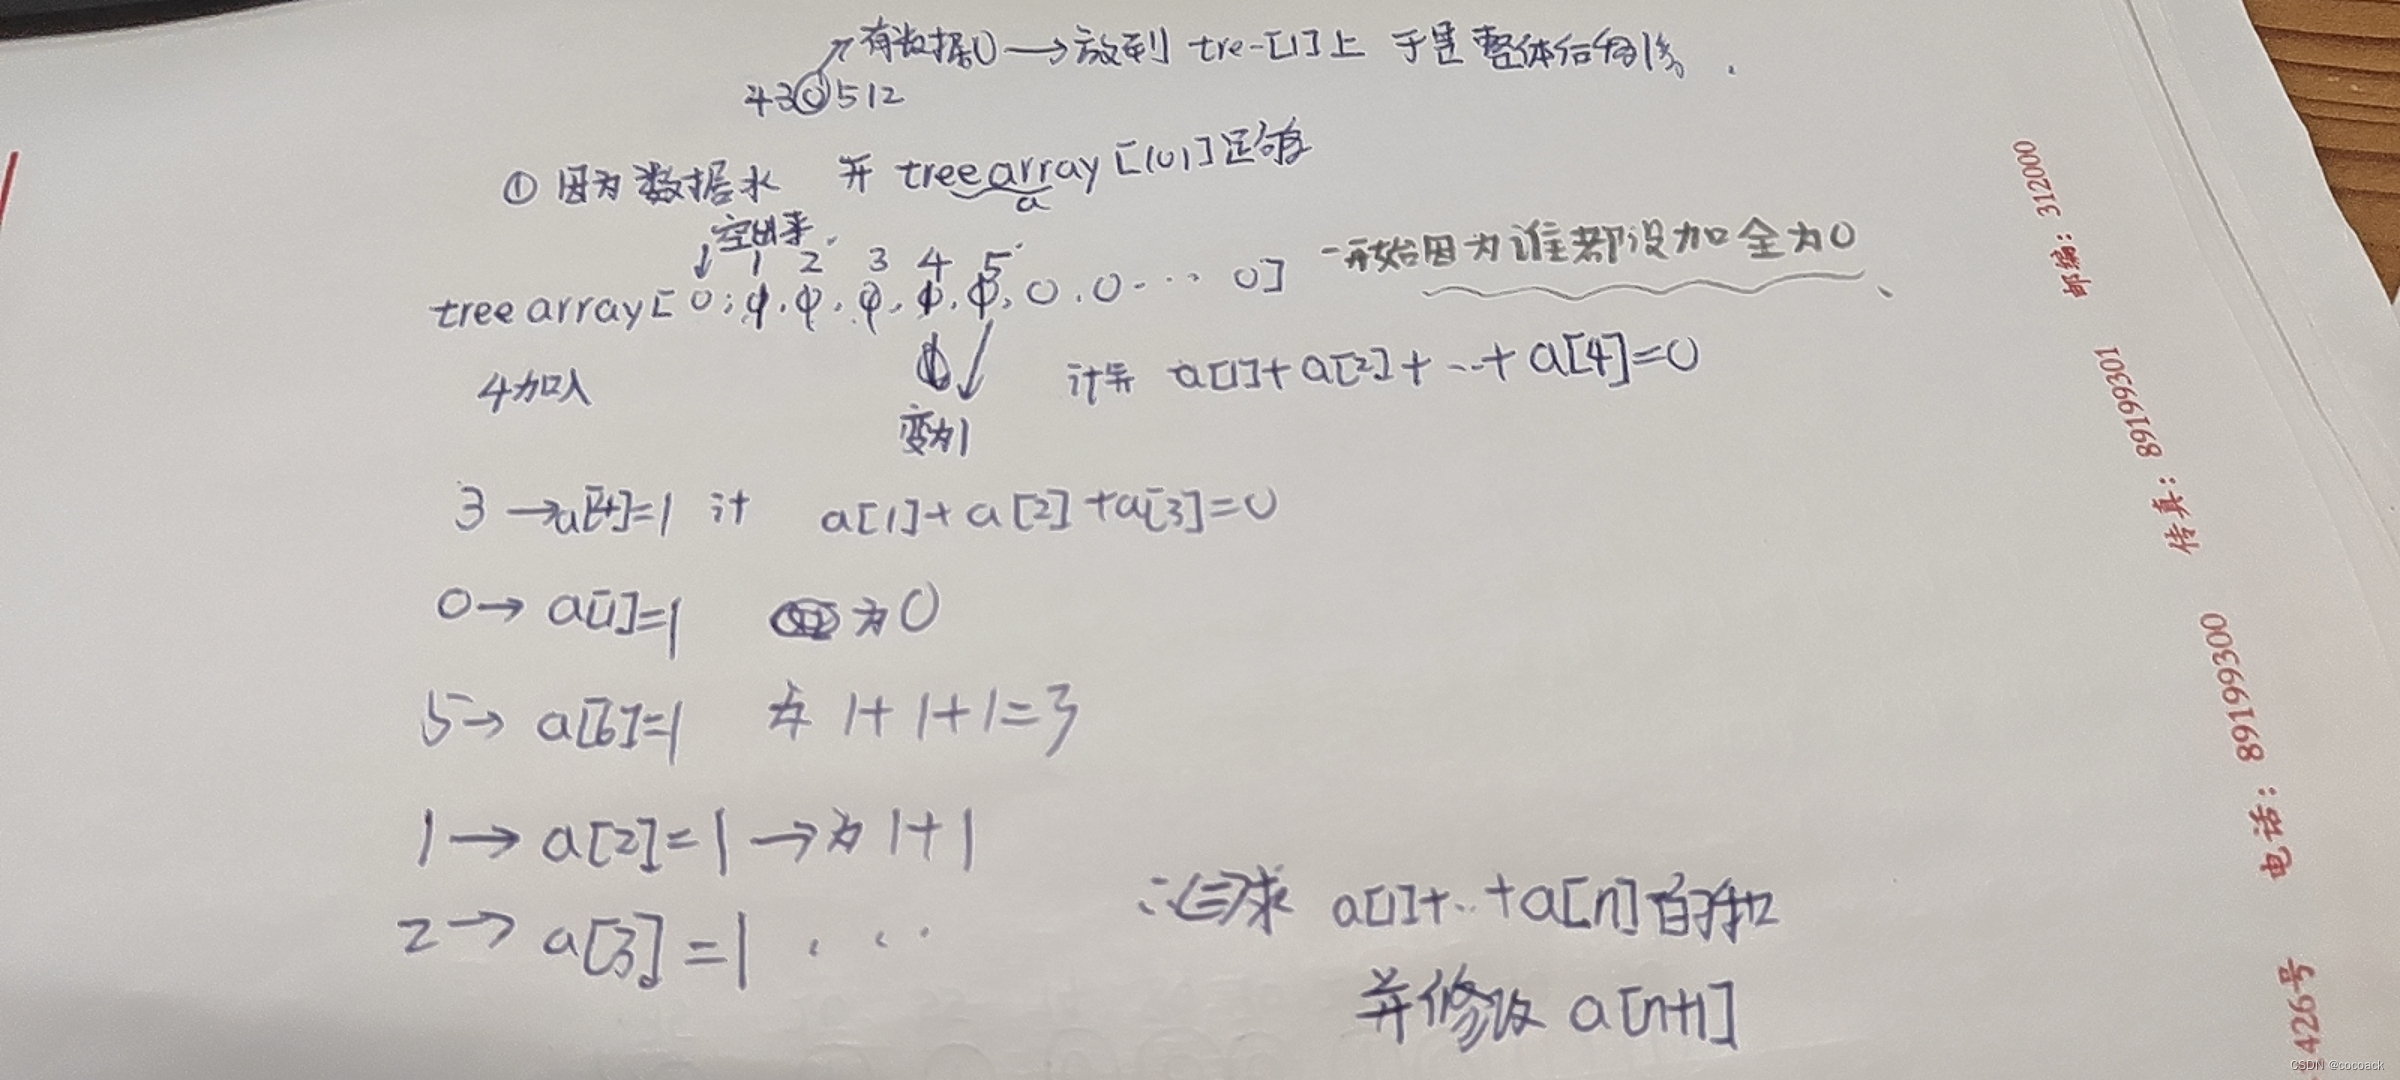 有数据0→放到 tre-[1]上 于是整体后移1格.
430512
①因为数据水 开 treearray[101]足够
a
空出来.
1 2 3 4 5
treearray[0,0,0,0,0,0,0,0...0] 一开始因为谁都没加全为0
4加入 计算 a[1]+a[2]+...+a[4]=0
变为1
3→a[4]=1 计 a[1]+a[2]+a[3]=0
0→a[1]=1 为0
5→a[6]=1 为 1+1+1=3
1→a[2]=1→为1+1
2→a[3]=1 ...
求 a[1]+..+a[n]的和
并修改 a[n+1]
邮编：312000
传真：89199301
电话：89199300
426号
CSDN @cocoack